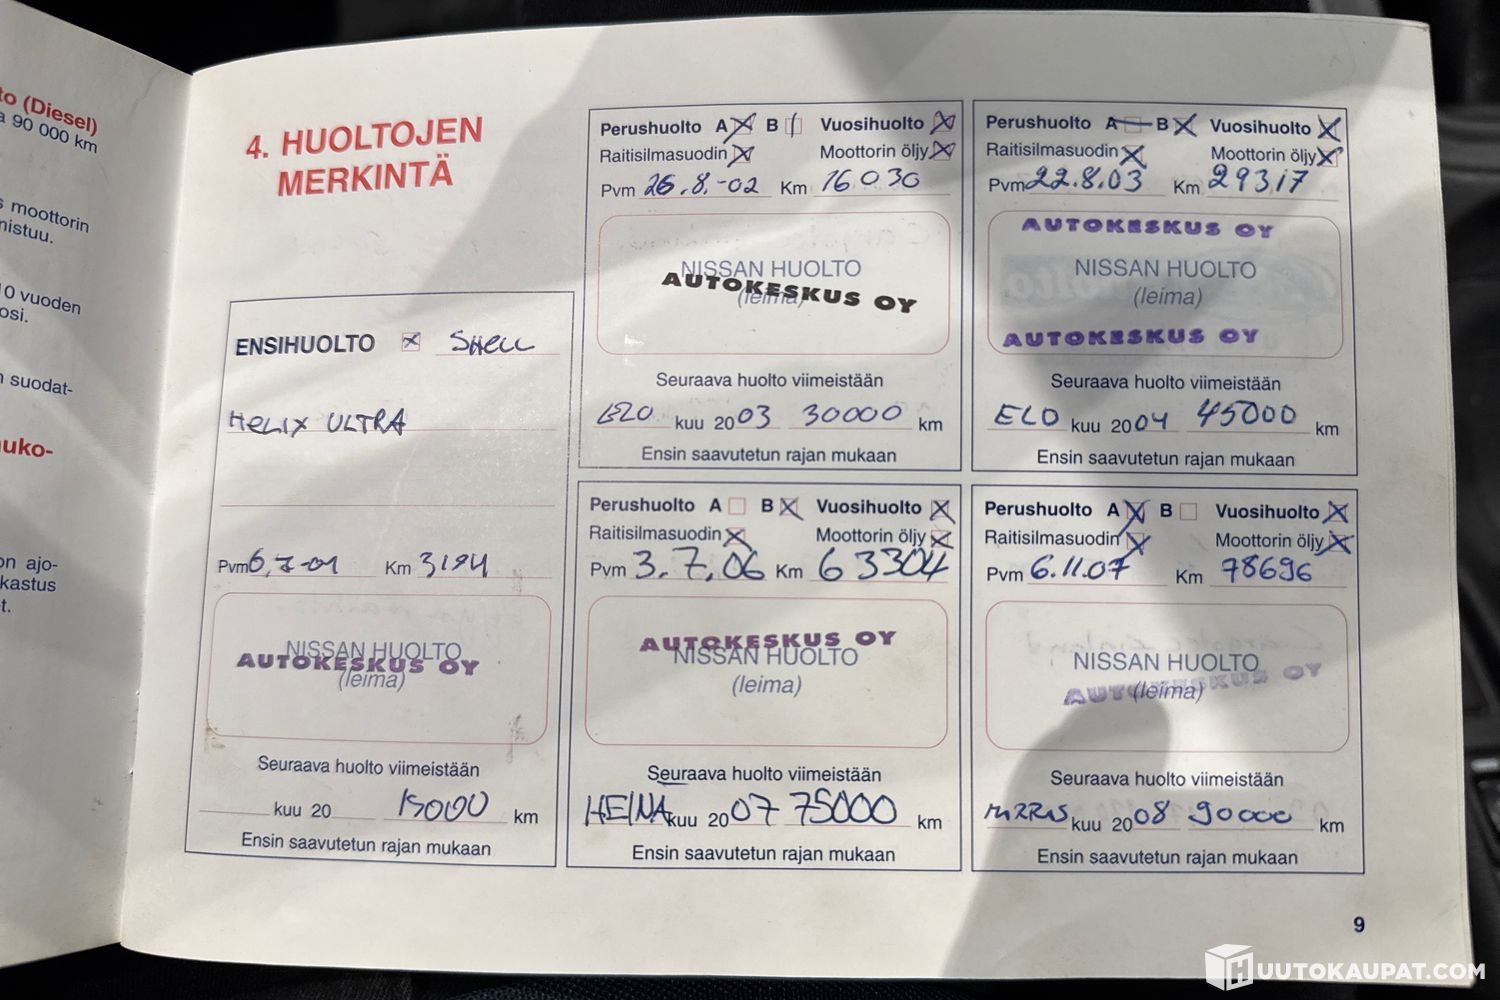 to (Diesel)
a 90 000 km
s moottorin
nistuu.
10 vuoden
osi.
n suodat-
uko-
on ajo-
kastus
t.
4. HUOLTOJEN
MERKINTÄ
ENSIHUOLTO SHELL
HELIX ULTRA
Pvm 6.7-01 Km 3194
NISSAN HUOLTO
AUTOKESKUS OY
(leima)
Seuraava huolto viimeistään
kuu 20 15000 km
Ensin saavutetun rajan mukaan
Perushuolto A B Vuosihuolto
Raitisilmasuodin Moottorin öljy
Pvm 26.8.-02 Km 16030
NISSAN HUOLTO
AUTOKESKUS OY
(leima)
Seuraava huolto viimeistään
ELO kuu 2003 30000 km
Ensin saavutetun rajan mukaan
Perushuolto A B Vuosihuolto
Raitisilmasuodin Moottorin öljy
Pvm 22.8.03 Km 29317
AUTOKESKUS OY
NISSAN HUOLTO
(leima)
AUTOKESKUS OY
Seuraava huolto viimeistään
ELO kuu 2004 45000 km
Ensin saavutetun rajan mukaan
Perushuolto A B Vuosihuolto
Raitisilmasuodin Moottorin öljy
Pvm 3.7.06 Km 63304
AUTOKESKUS OY
NISSAN HUOLTO
(leima)
Seuraava huolto viimeistään
HEINA kuu 2007 75000 km
Ensin saavutetun rajan mukaan
Perushuolto A B Vuosihuolto
Raitisilmasuodin Moottorin öljy
Pvm 6.11.07 Km 78696
NISSAN HUOLTO
AUTOKESKUS OY
(leima)
Seuraava huolto viimeistään
MARRAS kuu 2008 90000 km
Ensin saavutetun rajan mukaan
9
HUUTOKAUPAT.COM